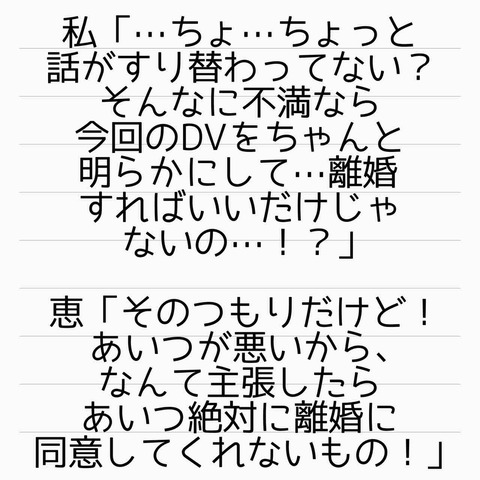 私「…ちょ…ちょっと
話がすり替わってない？
そんなに不満なら
今回のDVをちゃんと
明らかにして…離婚
すればいいだけじゃ
ないの…！？」
恵「そのつもりだけど！
あいつが悪いから、
なんて主張したら
あいつ絶対に離婚に
同意してくれないもの！」